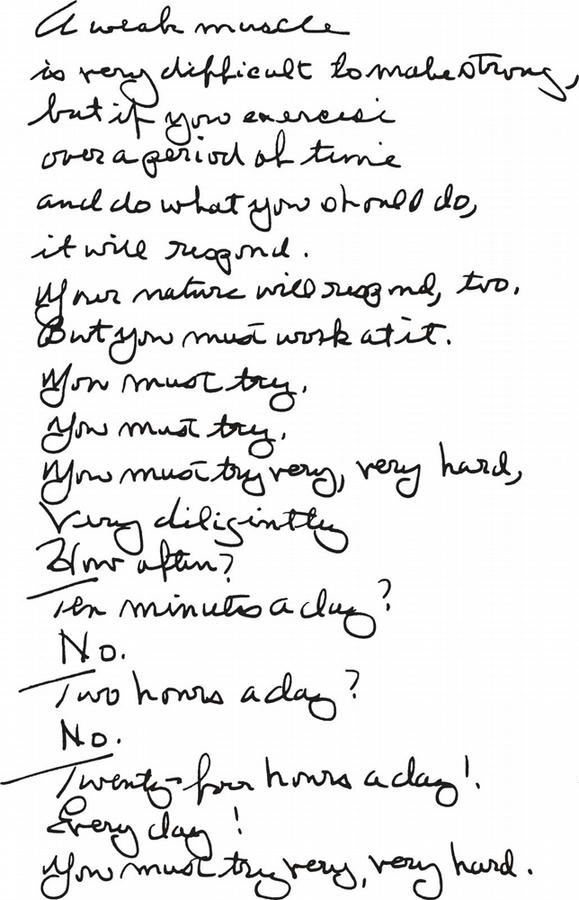 A weak muscle
is very difficult to make strong,
but if you exercise
over a period of time
and do what you should do,
it will respond.
Your nature will respond, too.
But you must work at it.
You must try.
You must try.
You must try very, very hard,
Very diligintly
How often?
Ten minutes a day?
No.
Two hours a day?
No.
Twenty-four hours a day!
Every day!
You must try very, very hard.